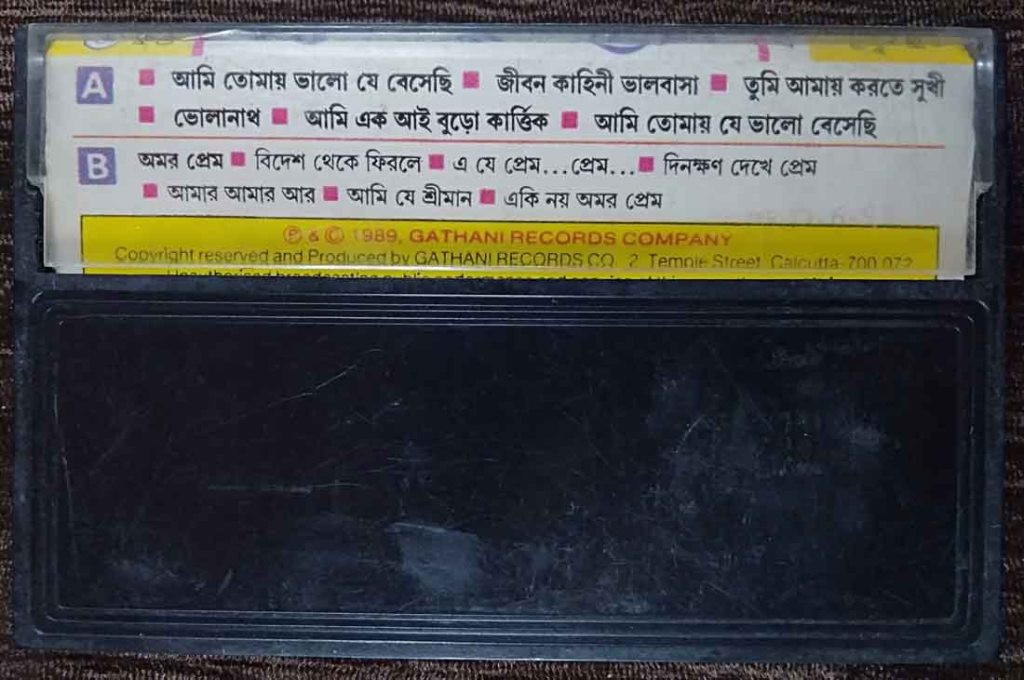 A ■ আমি তোমায় ভালো যে বেসেছি ■ জীবন কাহিনী ভালবাসা ■ তুমি আমায় করতে সুখী
■ ভোলানাথ ■ আমি এক আই বুড়ো কার্ত্তিক ■ আমি তোমায় যে ভালো বেসেছি
B অমর প্রেম ■ বিদেশ থেকে ফিরলে ■ এ যে প্রেম...প্রেম... ■ দিনক্ষণ দেখে প্রেম
■ আমার আমার আর ■ আমি যে শ্রীমান ■ একি নয় অমর প্রেম
Ⓟ & © 1989, GATHANI RECORDS COMPANY
Copyright reserved and Produced by GATHANI RECORDS CO. 2, Temple Street, Calcutta-700 072